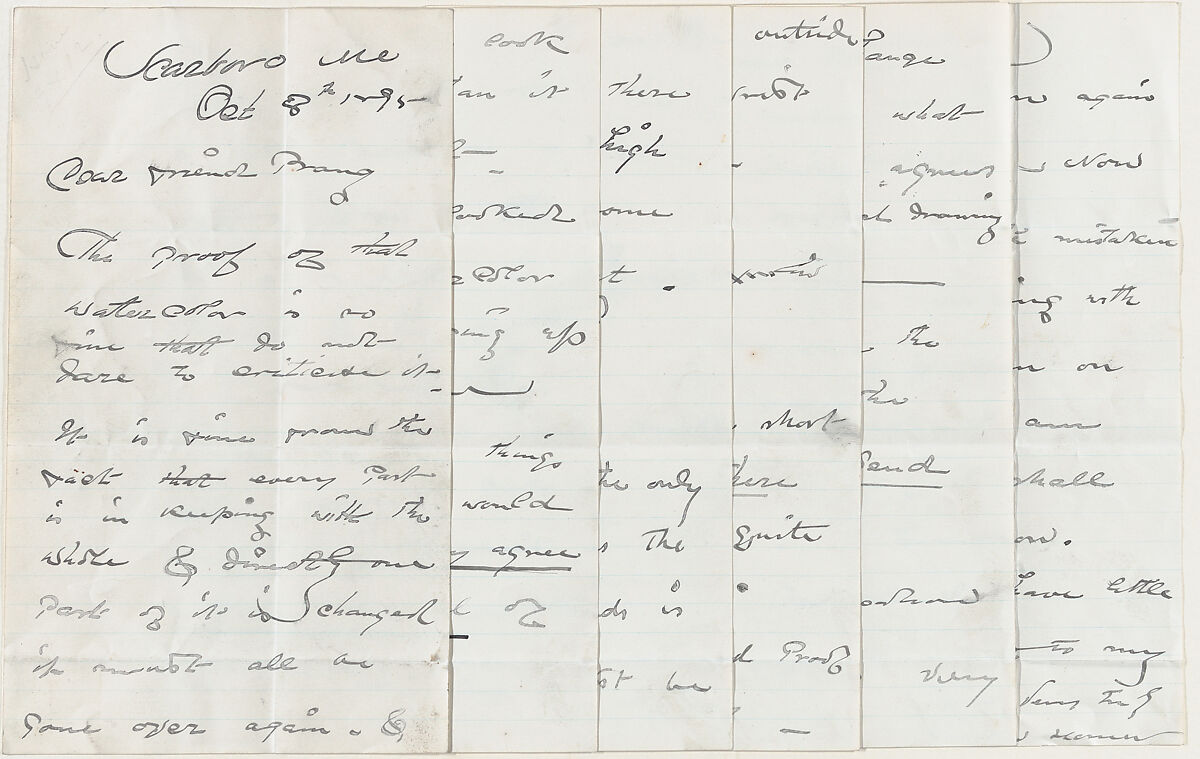 Scarboro Me
Oct 8th 1895
Dear friend Prang
The proof of that
water color is so
fine that do not
dare to criticise it -
It is fine from the
fact that every Part
is in keeping with the
whole & directly one
Part of it is changed
it must all be
gone over again. &
look
an it
asked
color
ing up
things
would
agree
of
there
high
ome
t.
the only
s the
ds is
st be
outside
short
here
Quite
d Proof
ange
what
agrees
at drawing
the
the
send
Very
again
Now
mistaken
ing with
on
am
shall
on.
have little
to my